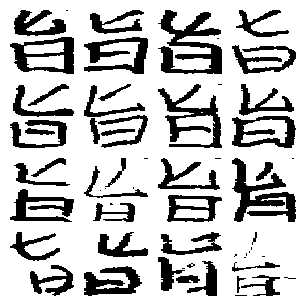 旨旨旨旨
旨旨旨旨
旨旨旨旨
旨旨旨旨